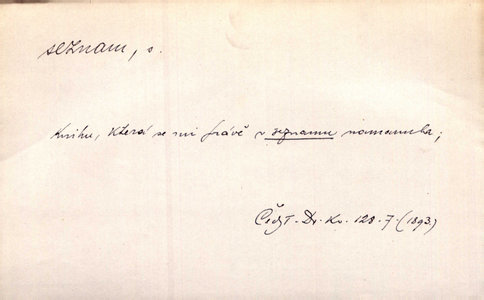 seznam, s.
knihu, která se mi právě v seznamu namanula;
Čech - Dr. Kv. 128. 7. (1893.)